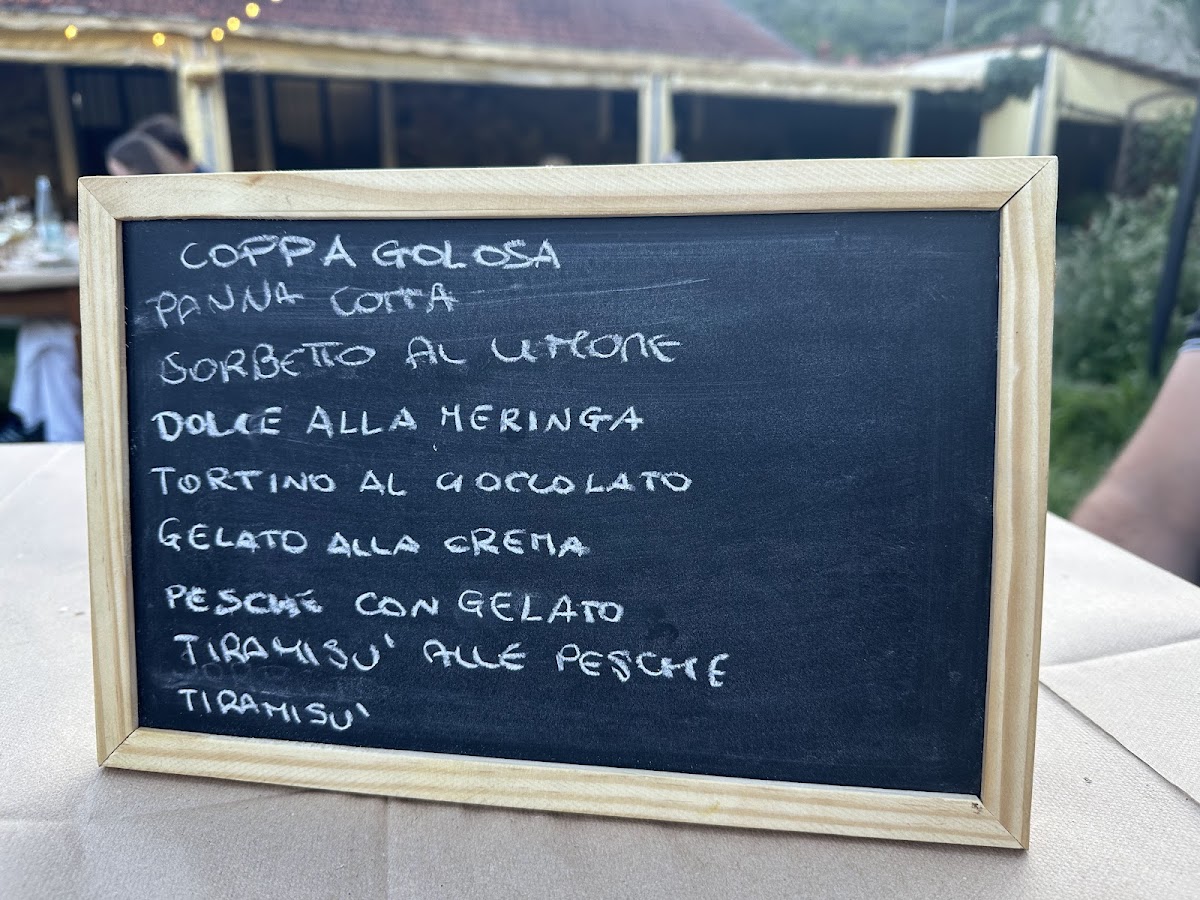 COPPA GOLOSA
PANNA COTTA
SORBETTO AL LIMONE
DOLCE ALLA MERINGA
TORTINO AL CIOCCOLATO
GELATO ALLA CREMA
PESCHE CON GELATO
TIRAMISU' ALLE PESCHE
TIRAMISU'